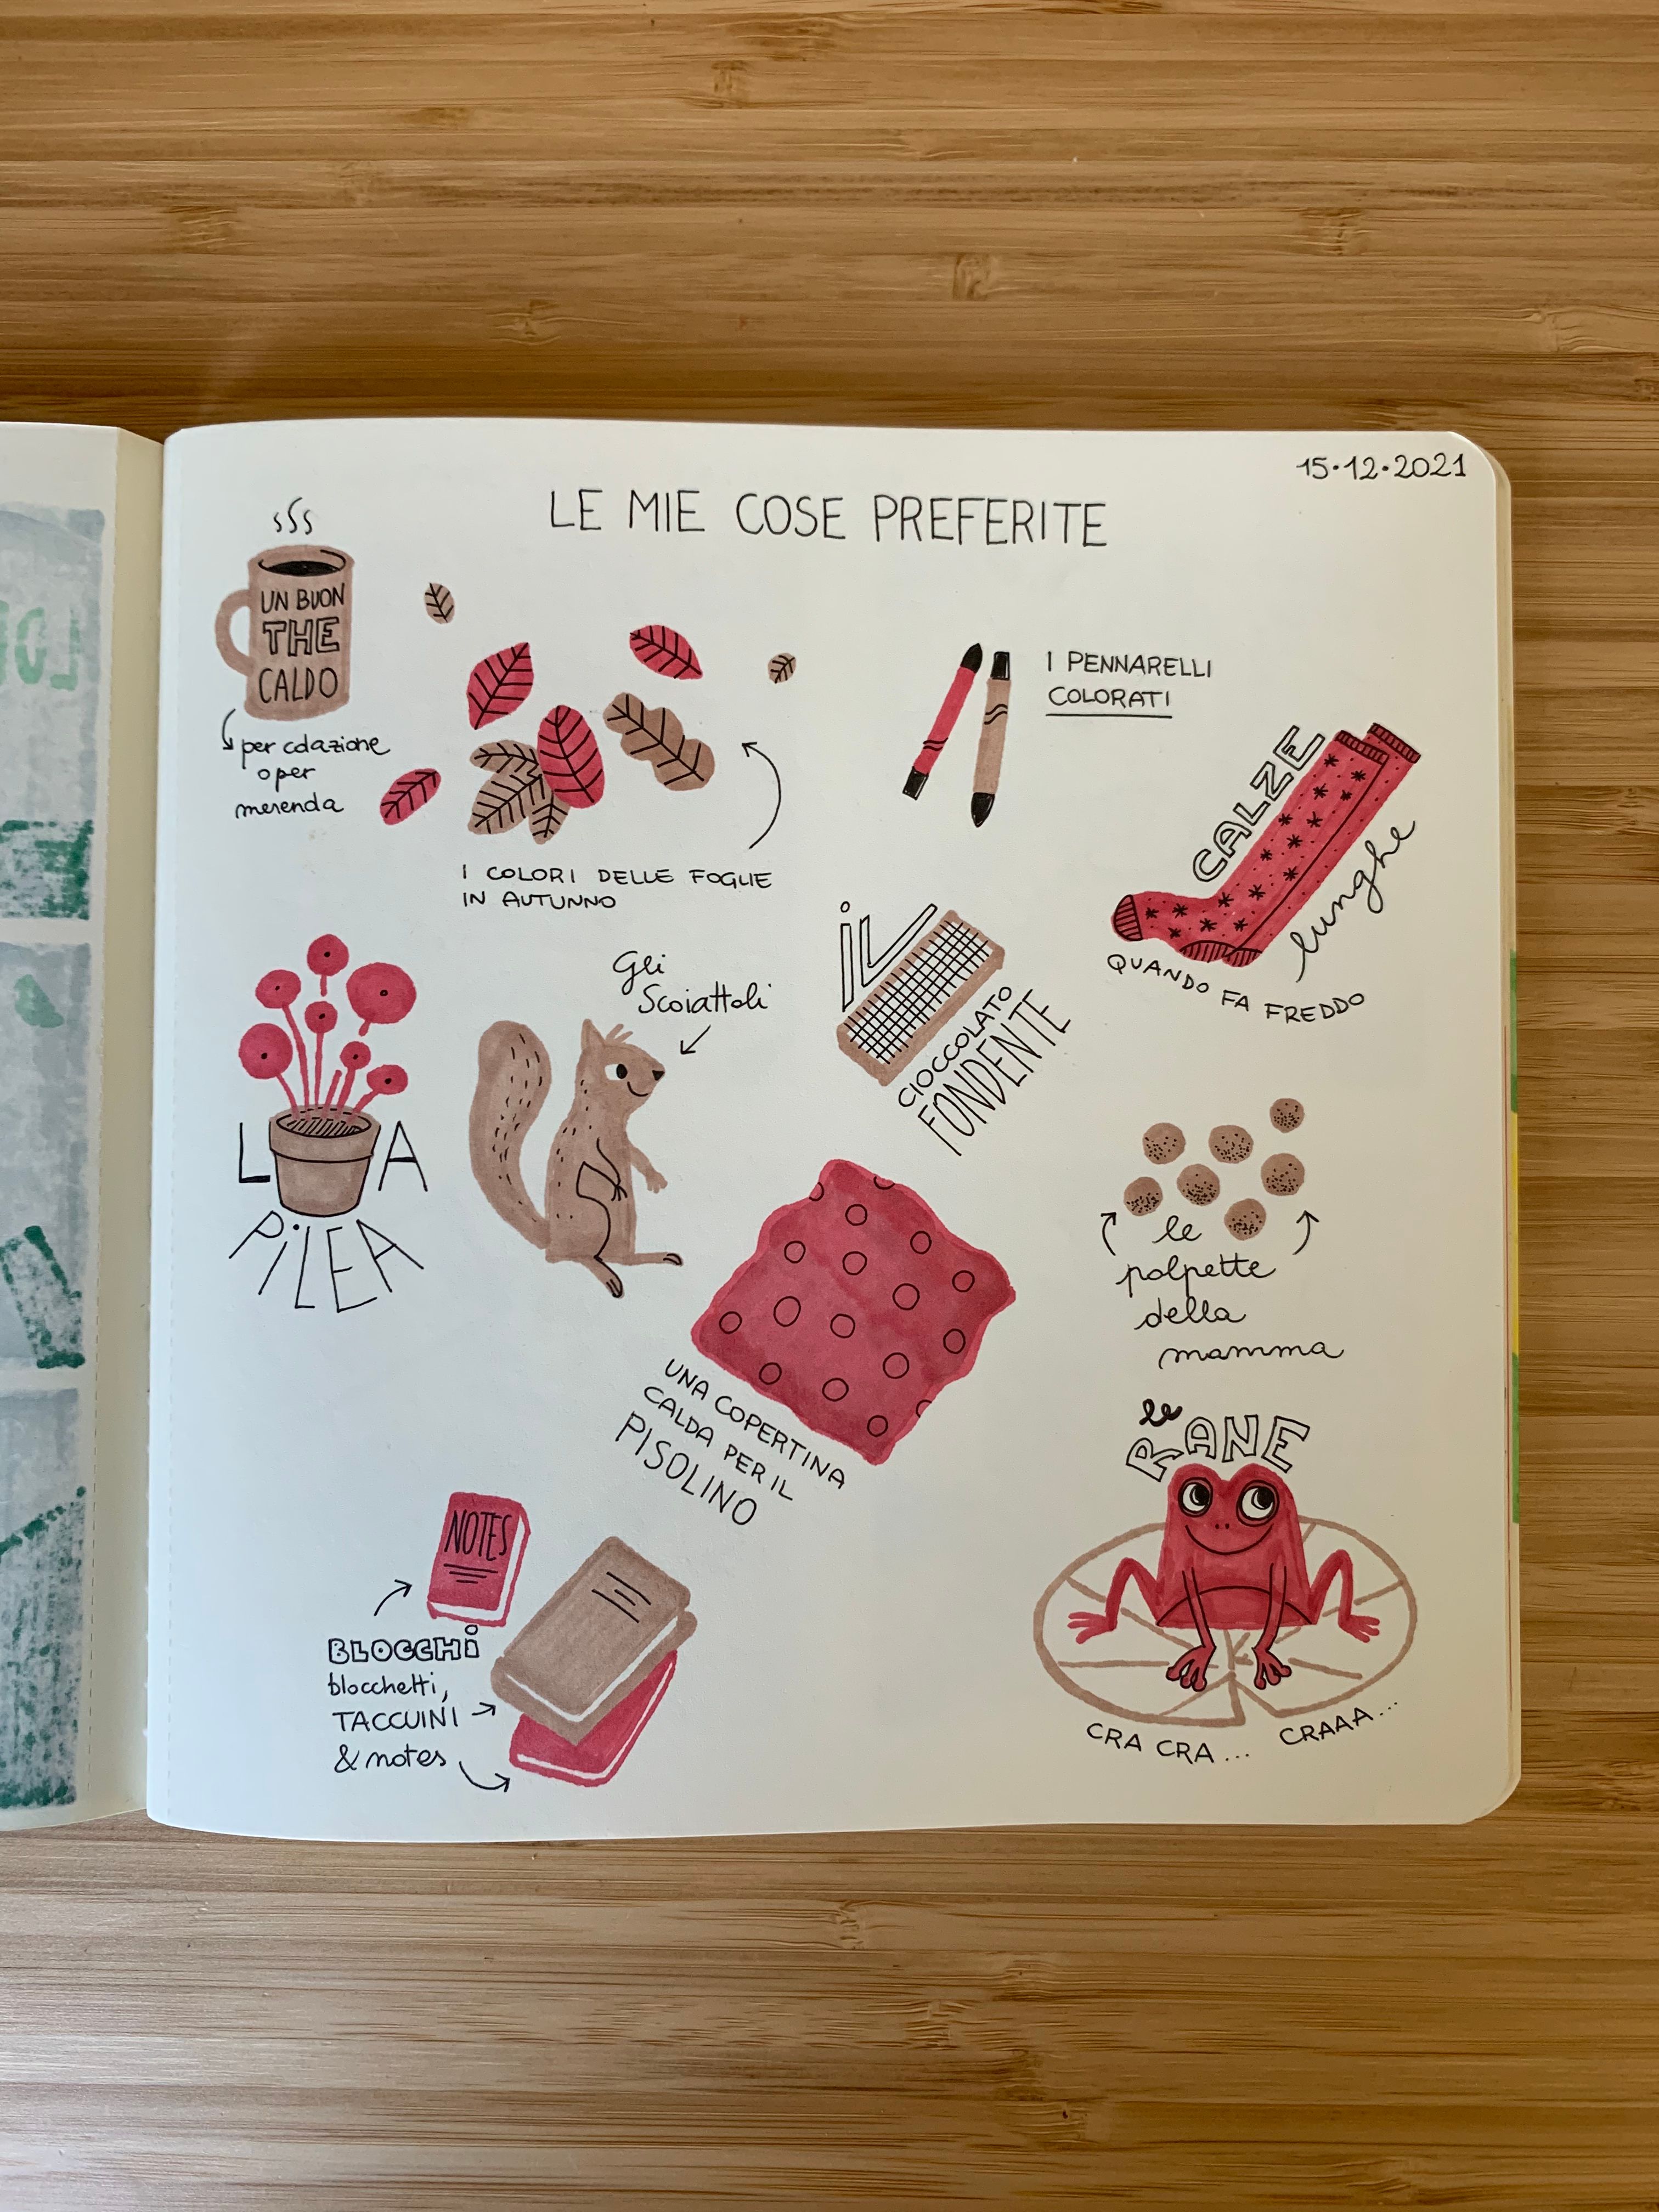 15.12.2021
LE MIE COSE PREFERITE
UN BUON
THE
CALDO
per colazione
o per
merenda
I COLORI DELLE FOGLIE
IN AUTUNNO
I PENNARELLI
COLORATI
CALZE
lunghe
QUANDO FA FREDDO
LA
PiLEA
Gli
Scoiattoli
iL
CIOCCOLATO
FONDENTE
le
polpette
della
mamma
UNA COPERTINA
CALDA PER IL
PISOLINO
le
RANE
CRA CRA... CRAAA...
NOTES
BLOCCHi
blocchetti,
TACCUINI
& notes